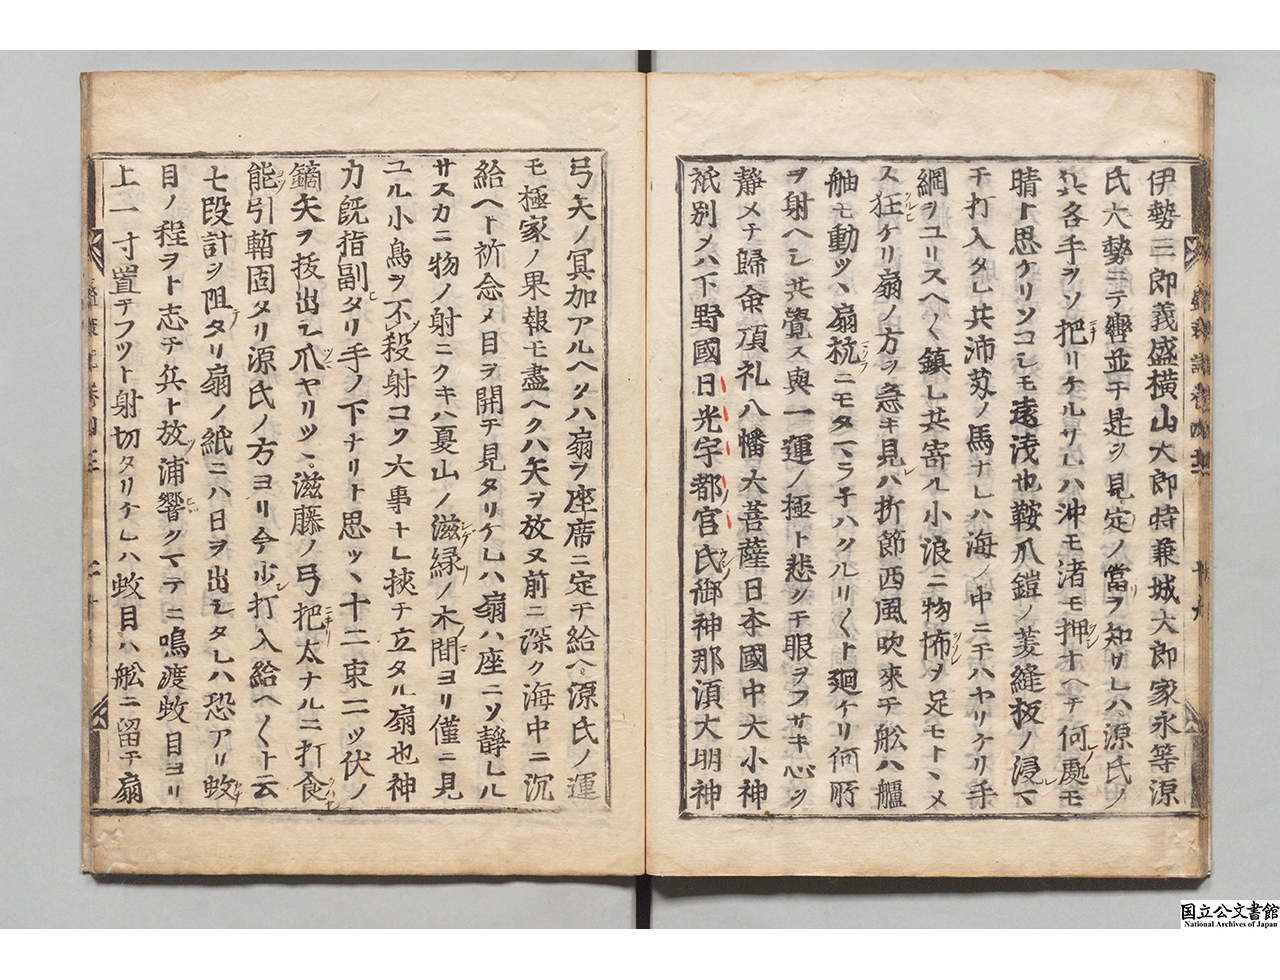 伊勢三郎義盛横山大郎時兼城大郎家永等源
氏大勢ニテ轡並テ是ヲ見定ノ當ヲ知サレハ源氏ノ
兵各手ヲソ把リケルサレハ沖モ渚モ押ナヘテ何處モ
晴ト思ケリソコシモ遠浅也鞍爪鎧ノ菱縫板ノ浸マ
テ打入タレ共沛艾ノ馬ナレハ海ノ中ニテハヤリケリ手
綱ヲユリスヘ〱鎮レ共寄ル小浪ニ物怖ヲ足モトヽメ
ス狂ケリ扇ノ方ヲ急キ見ハ折節西風吹來テ舩ハ艫
舳モ動ツヽ扇杭ニモタマラ子ハクルリ〱ト廻ケリ何所
ヲ射ヘシ共覺ス與一運ノ極ト悲クテ眼ヲフサキ心ヲ
靜メテ歸命頂礼八幡大菩薩日夲國中大小神
祇別メハ下野國日光宇都宮氏御神那湏大明神
弓矢ノ冥加アルヘクハ扇ヲ座席ニ定テ給ヘ源氏ノ運
モ極家ノ果報モ盡ヘクハ矢ヲ放ヌ前ニ深ク海中ニ沉
給ヘト祈念メ目ヲ開テ見タリケレハ扇ハ座ニソ靜レル
サスカニ物ノ射ニクキハ夏山ノ滋緑ノ木間ヨリ僅ニ見
ユル小鳥ヲ不殺射コソ大事ナレ挾テ立タル扇也神
力既指副タリ手ノ下ナリト思ツヽ十二束二ツ伏ノ
鏑矢ヲ抜出シ爪ヤリツヽ滋藤ノ弓把太ナルニ打食
能引暫固タリ源氏ノ方ヨリ今少打入給ヘ〱ト云
七段計ヲ阻タリ扇ノ紙ニハ日ヲ出シタレハ恐アリ蚊
目ノ程ヲト志テ兵ト放浦響クマテニ鳴渡蚊目ヨリ
上一寸置テフツト射切タリケレハ蚊目ハ舩ニ留テ扇
国立公文書館
National Archives of Japan